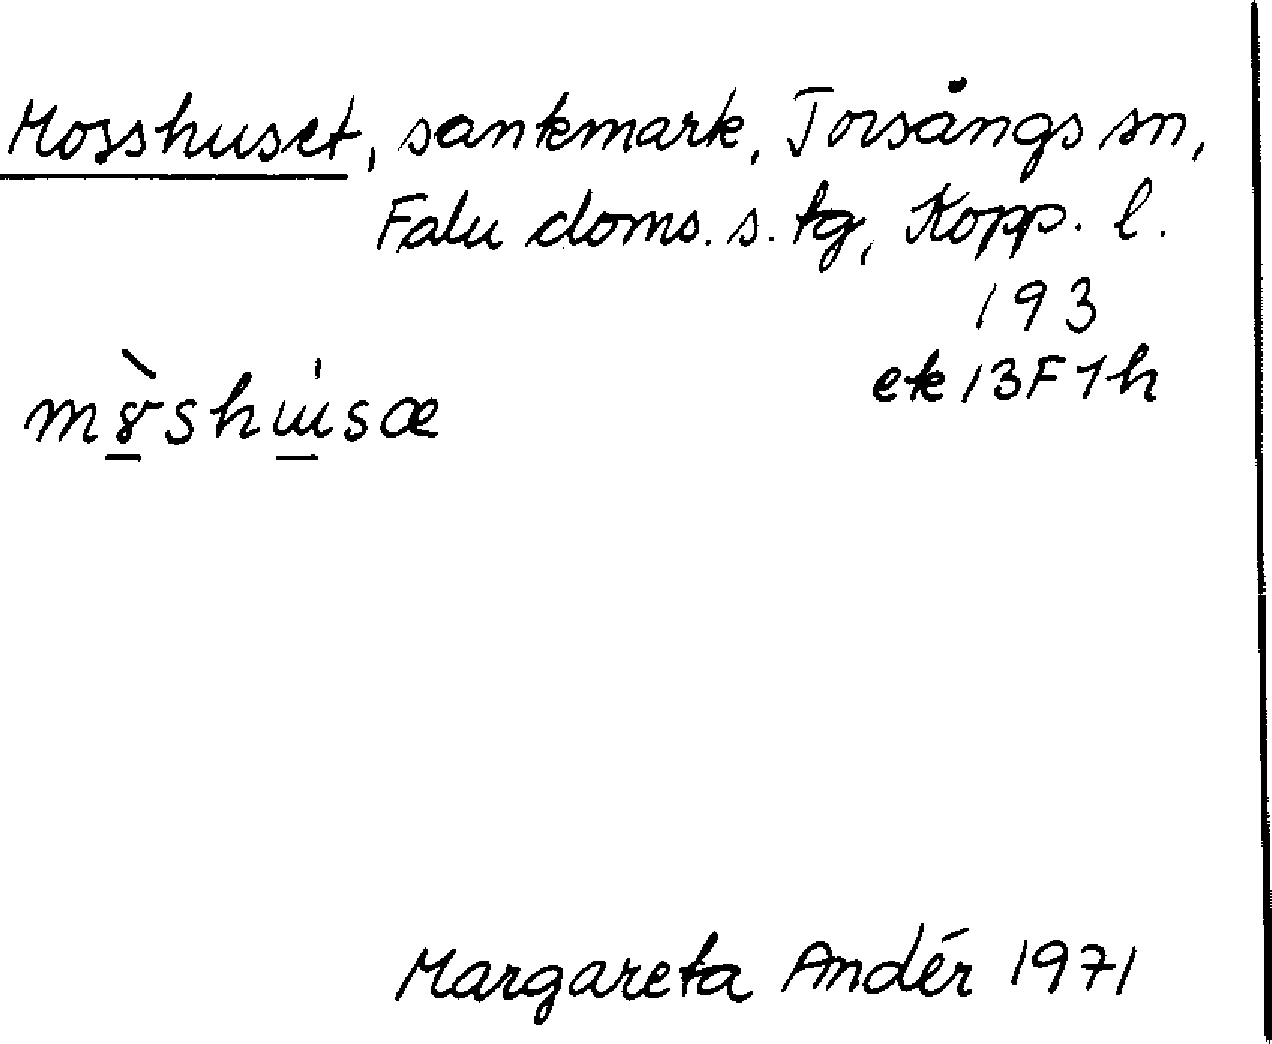 Mosshuset, sankmark, Torsångs sn,
Falu doms. s. tg, Kopp. l.
193
ek 13F1h
Margareta Andér 1971